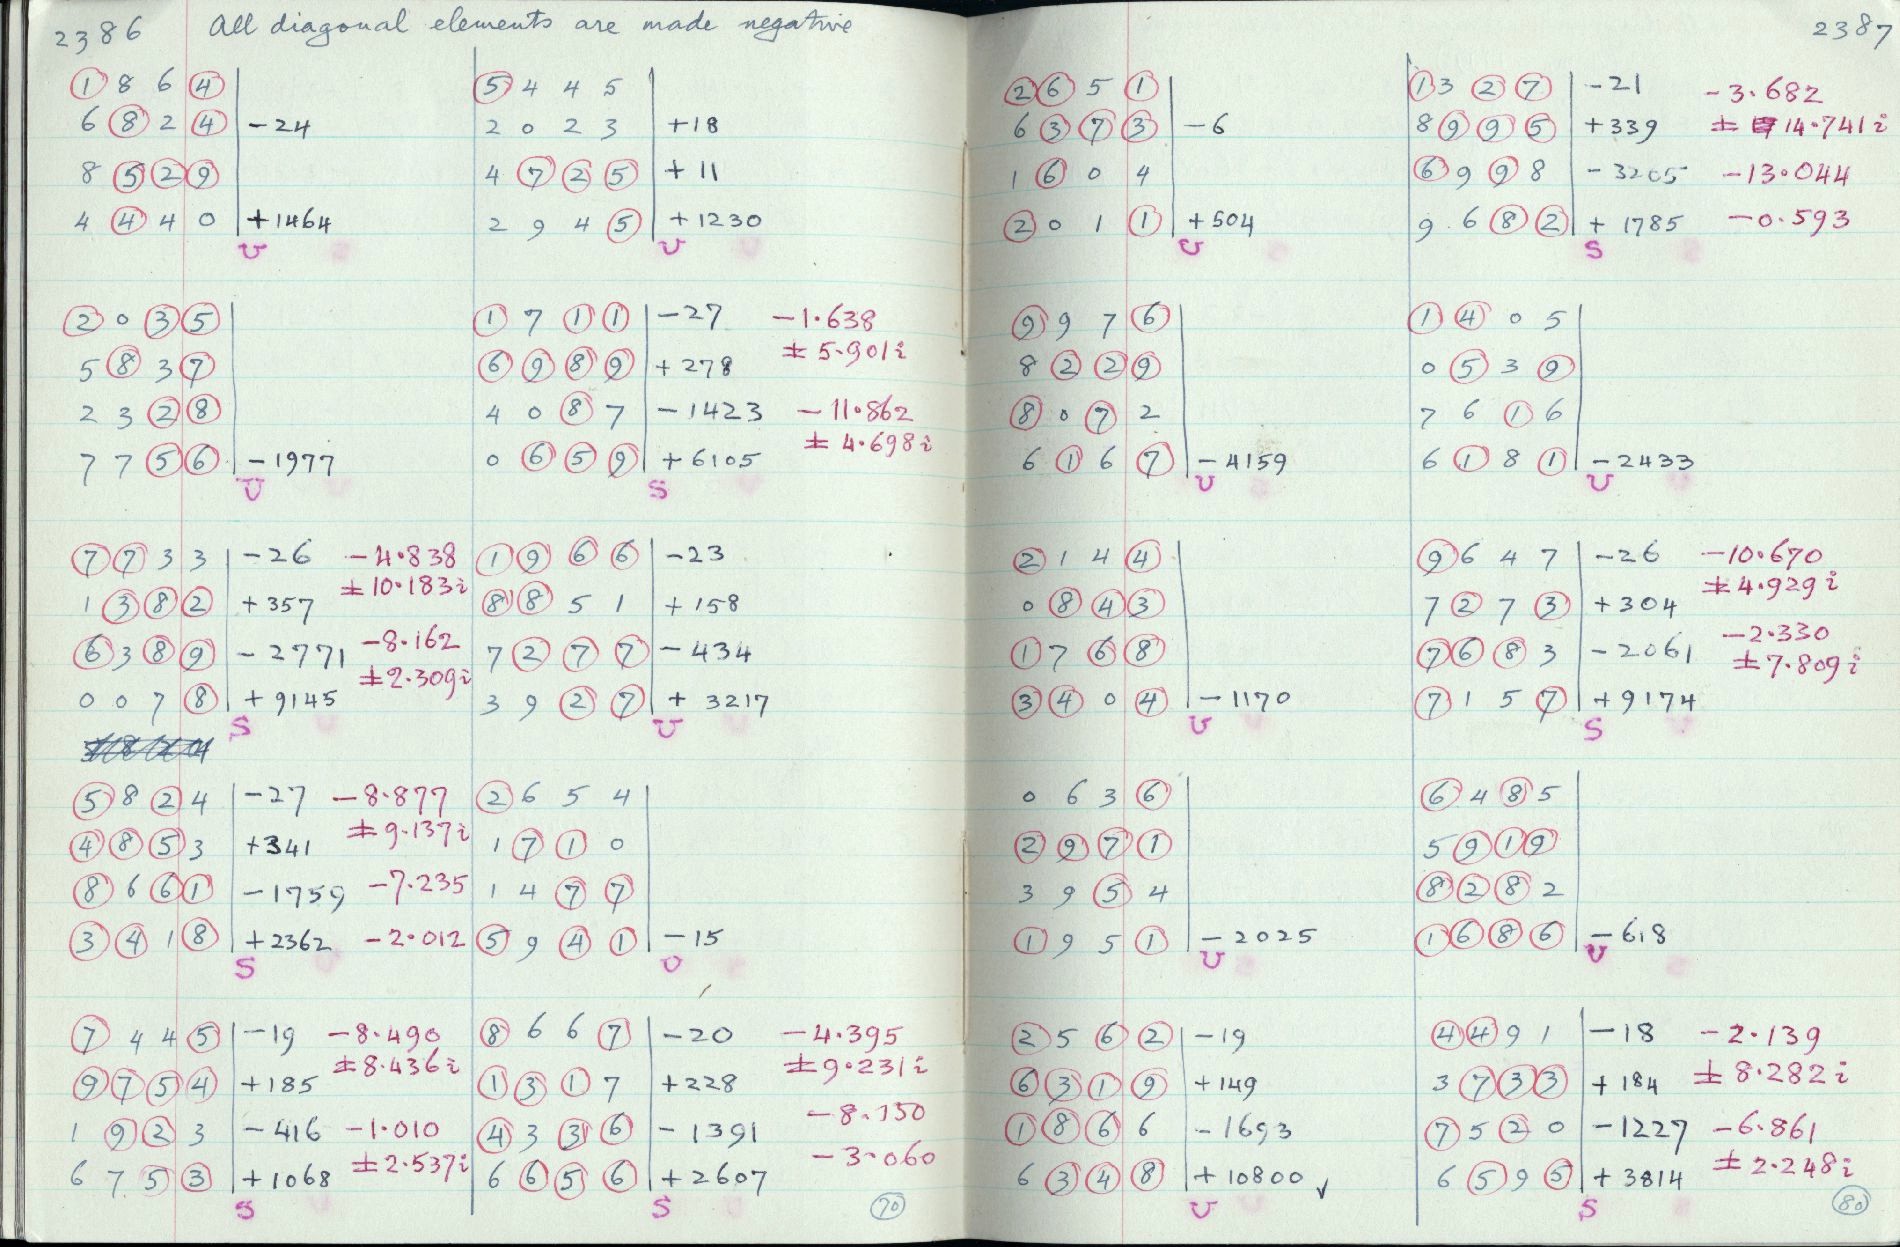 2386 All diagonal elements are made negative
① 8 6 ④
6 ⑧ 2 ④ -24
8 ⑤ ② ⑨
4 ④ 4 0 +1464
U
⑤ 4 4 5
2 0 2 3 +18
4 ⑦ ② ⑤ +11
2 9 4 ⑤ +1230
U
② 0 ③ ⑤
5 ⑧ 3 ⑦
2 3 ② ⑧
7 7 ⑤ ⑥ -1977
U
① 7 ① ① -27 -1.638
± 5.901i
⑥ ⑨ ⑧ ⑨ +278
4 0 ⑧ 7 -1423 -11.862
± 4.698i
0 ⑥ ⑤ ⑨ +6105
S
⑦ ⑦ 3 3 -26 -4.838
± 10.183i
1 ③ ⑧ ② +357
⑥ 3 ⑧ ⑨ -2771 -8.162
± 2.309i
0 0 7 ⑧ +9145
S
① ⑨ ⑥ ⑥ -23
⑧ ⑧ 5 1 +158
7 ② ⑦ ⑦ -434
3 9 ② ⑦ +3217
U
⑤ 8 ② 4 -27 -8.877
± 9.137i
④ ⑧ ⑤ 3 +341
⑧ 6 ⑥ ① -1759 -7.235
③ ④ 1 ⑧ +2362 -2.012
S
② 6 5 4
1 ⑦ ① 0
1 4 ⑦ ⑦
⑤ 9 ④ ① -15
U
⑦ 4 4 ⑤ -19 -8.490
± 8.436i
⑨ ⑦ ⑤ ④ +185
1 ⑨ ② 3 -416 -1.010
± 2.537i
6 7 ⑤ ③ +1068
S
⑧ 6 6 ⑦ -20 -4.395
± 9.231i
① ③ ① 7 +228
④ 3 ③ ⑥ -1391 -8.150
-3.060
6 ⑥ ⑤ ⑥ +2607
S
70
2387
② ⑥ 5 ①
6 ③ ⑦ ③ -6
1 ⑥ 0 4
② 0 1 ① +504
U
① 3 ② ⑦ -21 -3.682
8 ⑨ ⑨ ⑤ +339 ± 14.741i
⑥ 9 ⑨ 8 -3205 -13.044
9 6 ⑧ ② +1785 -0.593
S
⑨ 9 7 ⑥
8 ② ② ⑨
⑧ 0 ⑦ 2
6 ① 6 ⑦ -4159
U
① ④ 0 5
0 ⑤ 3 ⑨
7 6 ① 6
6 ① 8 ① -2433
U
② 1 4 ④
0 ⑧ ④ ③
① 7 ⑥ ⑧
③ ④ 0 ④ -1170
U
⑨ 6 4 7 -26 -10.670
± 4.929i
7 ② 7 ③ +304
-2.330
⑦ ⑥ ⑧ 3 -2061 ± 7.809i
⑦ 1 5 ⑦ +9174
S
0 6 3 ⑥
② ⑨ ⑦ ①
3 9 ⑤ 4
① 9 5 ① -2025
U
⑥ 4 ⑧ 5
5 ⑨ ① ⑨
⑧ ② ⑧ 2
① ⑥ ⑧ ⑥ -618
U
② 5 ⑥ ② -19
⑥ ③ ① ⑨ +149
① ⑧ ⑥ 6 -1693
6 ③ ④ ⑧ +10800 ✓
U
④ ④ 9 1 -18 -2.139
3 ⑦ ③ ③ +184 ± 8.282i
⑦ 5 ② 0 -1227 -6.861
± 2.248i
6 ⑤ 9 ⑤ +3814
S
80